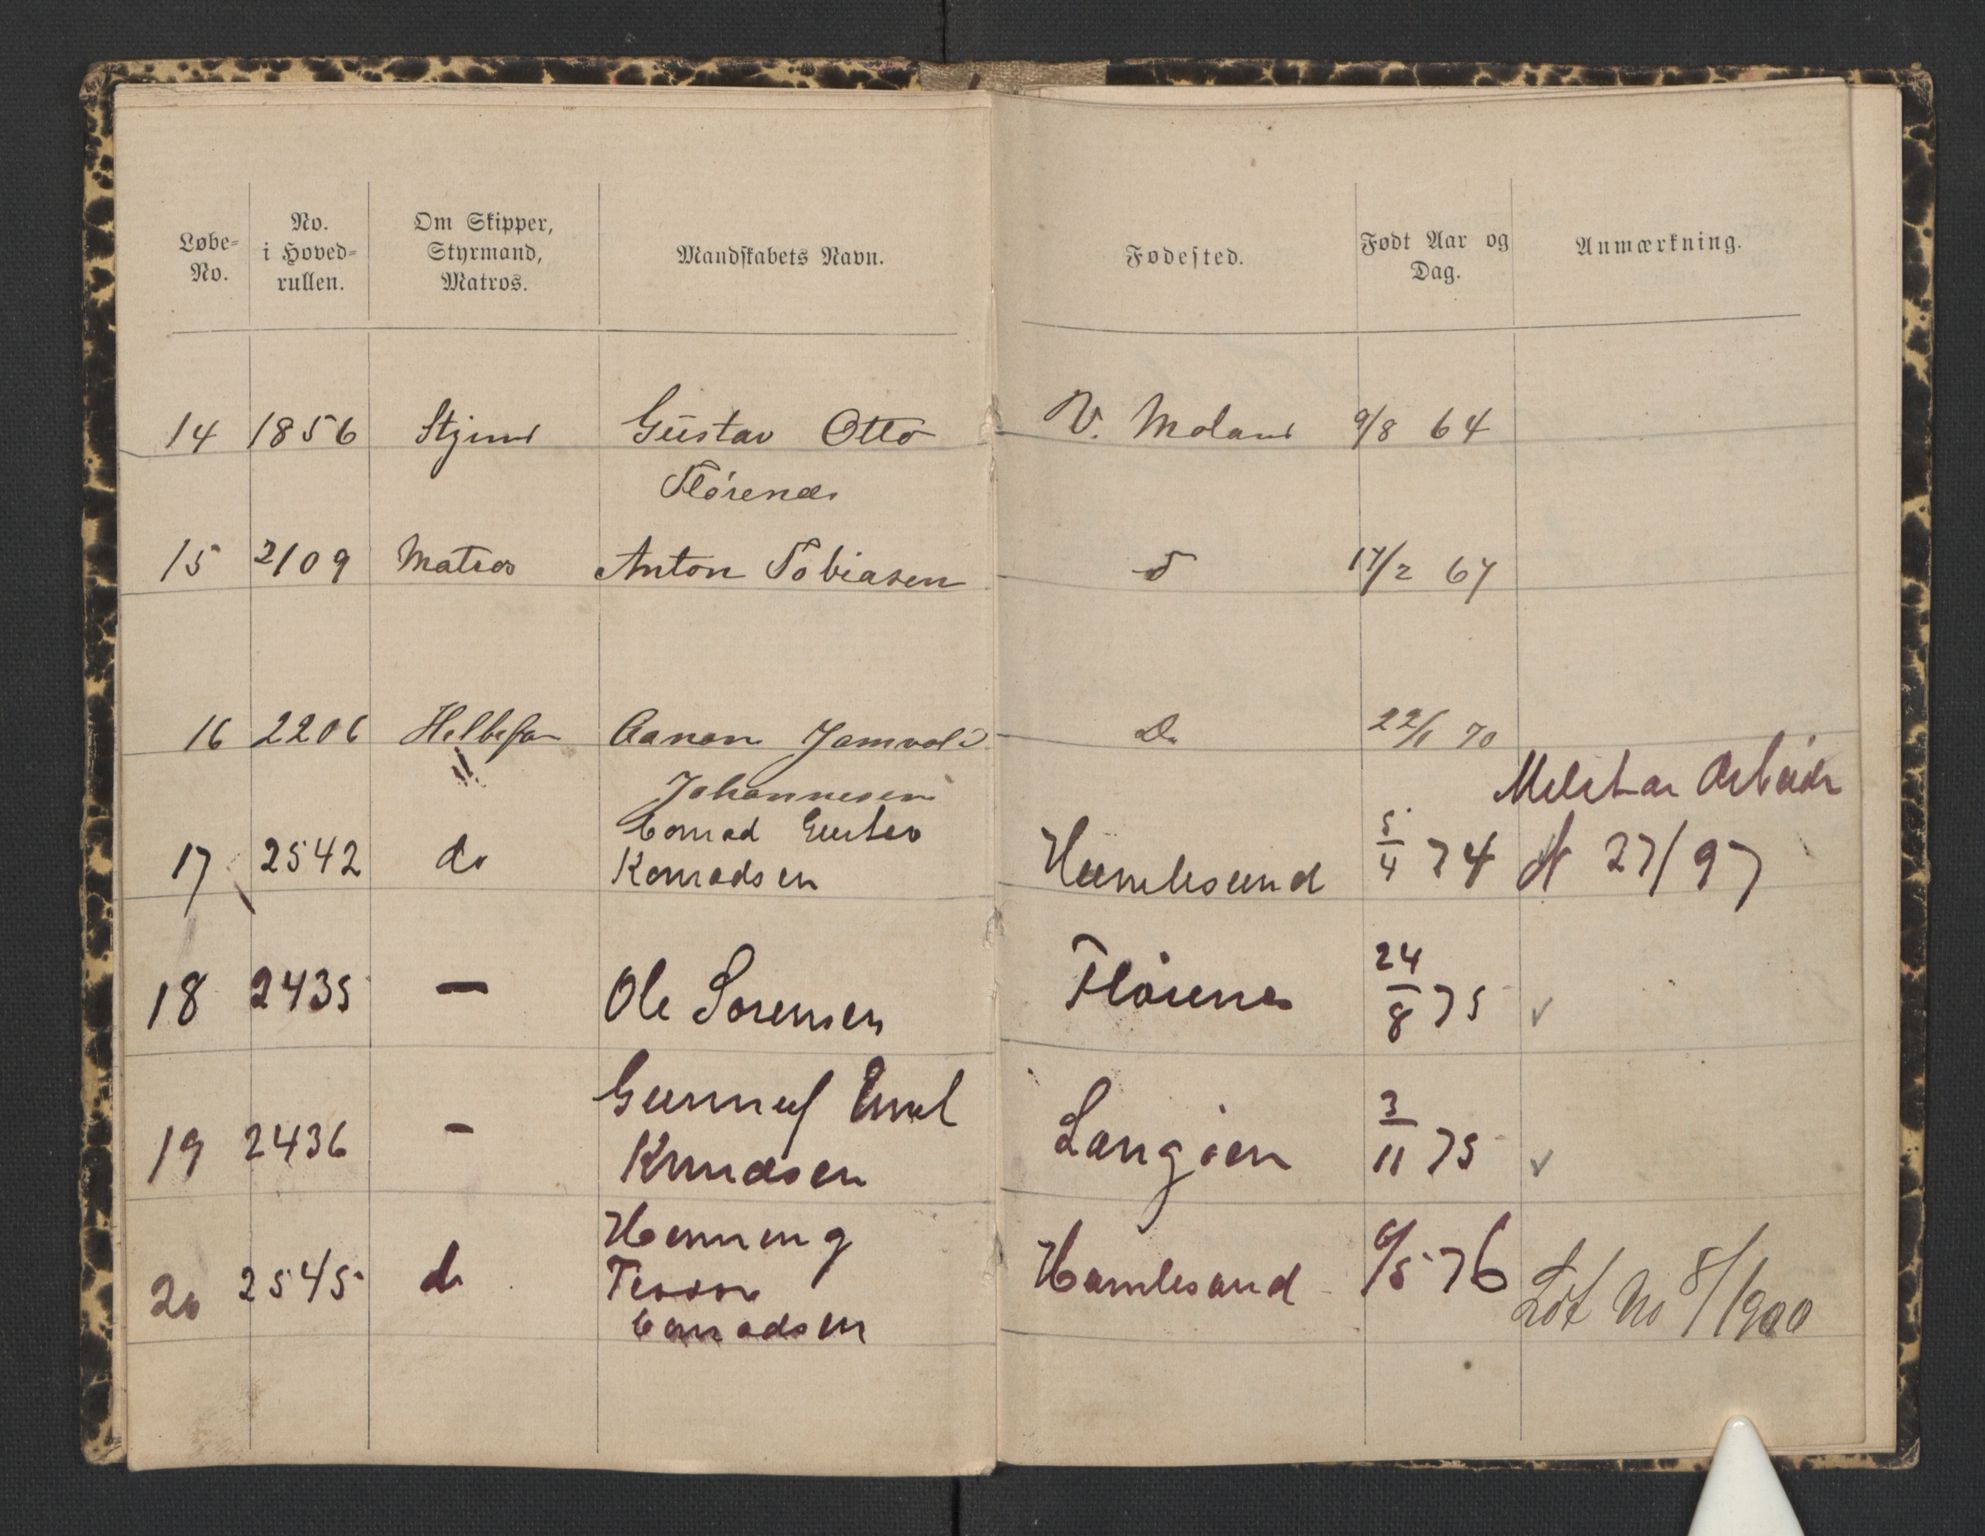 Løbe-No. No. i Hoved-rullen. Om Skipper, Styrmand, Matros. Mandskabets Navn. Fødested. Født Aar og Dag. Anmærkning.
14 1856 Stjmd Gustav Otto V. Moland 9/8 64
Flørenæs
15 2109 Matros Anton Tobiasen D 17/2 67
16 2206 Helbefar Aanon Jamvold Do 22/1 70
Johannesen Militær Arbeide
Conrad Gustav
17 2542 do Konradsen Humlesund 5/4 74 N 27/97
18 2435 — Ole Sorensen Flørenes 24/8 75 ✓
Gunnuf Emil
19 2436 — Knudsen Langøen 3/11 75 ✓
Henning
20 2545 do Hamlesand 6/5 76 Lot No 8/1900
Conradsen